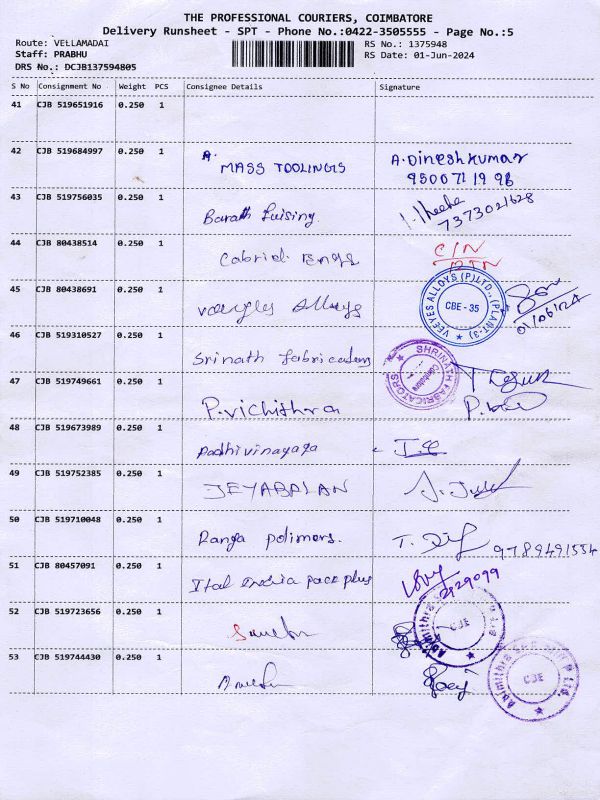 THE PROFESSIONAL COURIERS, COIMBATORE
Delivery Runsheet - SPT - Phone No.:0422-3505555 - Page No.:5
Route: VELLAMADAI
RS No.: 1375948
Staff: PRABHU
RS Date: 01-Jun-2024
DRS No.: DCJB137594805
S No Consignment No Weight PCS Consignee Details Signature
41 CJB 519651916 0.250 1
42 CJB 519684997 0.250 1 A. MASS TOOLINGS A.Dineshkumar
95007119
43 CJB 519756035 0.250 1 Barath
7373021628
44 CJB 80438514 0.250 1 Cabriel Engg C/N
RTN
45 CJB 80438691 0.250 1 Alloys
VEEYES ALLOYS (P) LTD., (PLANT-3)
CBE - 35
01/06/24
46 CJB 519310527 0.250 1 Srinath fabricators
SHRINATH FABRICATORS
Coimbatore
47 CJB 519749661 0.250 1 P.vichithra
48 CJB 519673989 0.250 1 Padhivinayaga
49 CJB 519752385 0.250 1 JEYABALAN
50 CJB 519710048 0.250 1 Ranga polimers.
9789491554
51 CJB 80457091 0.250 1 Ital India pack plus
52 CJB 519723656 0.250 1
Abimithra
CBE
53 CJB 519744430 0.250 1
Abimithra
CBE